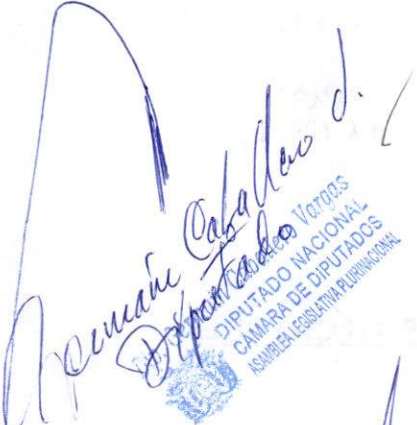 Germain Caballero V.
Diputado
Caballero Vargas
DIPUTADO NACIONAL
CAMARA DE DIPUTADOS
ASAMBLEA LEGISLATIVA PLURINACIONAL